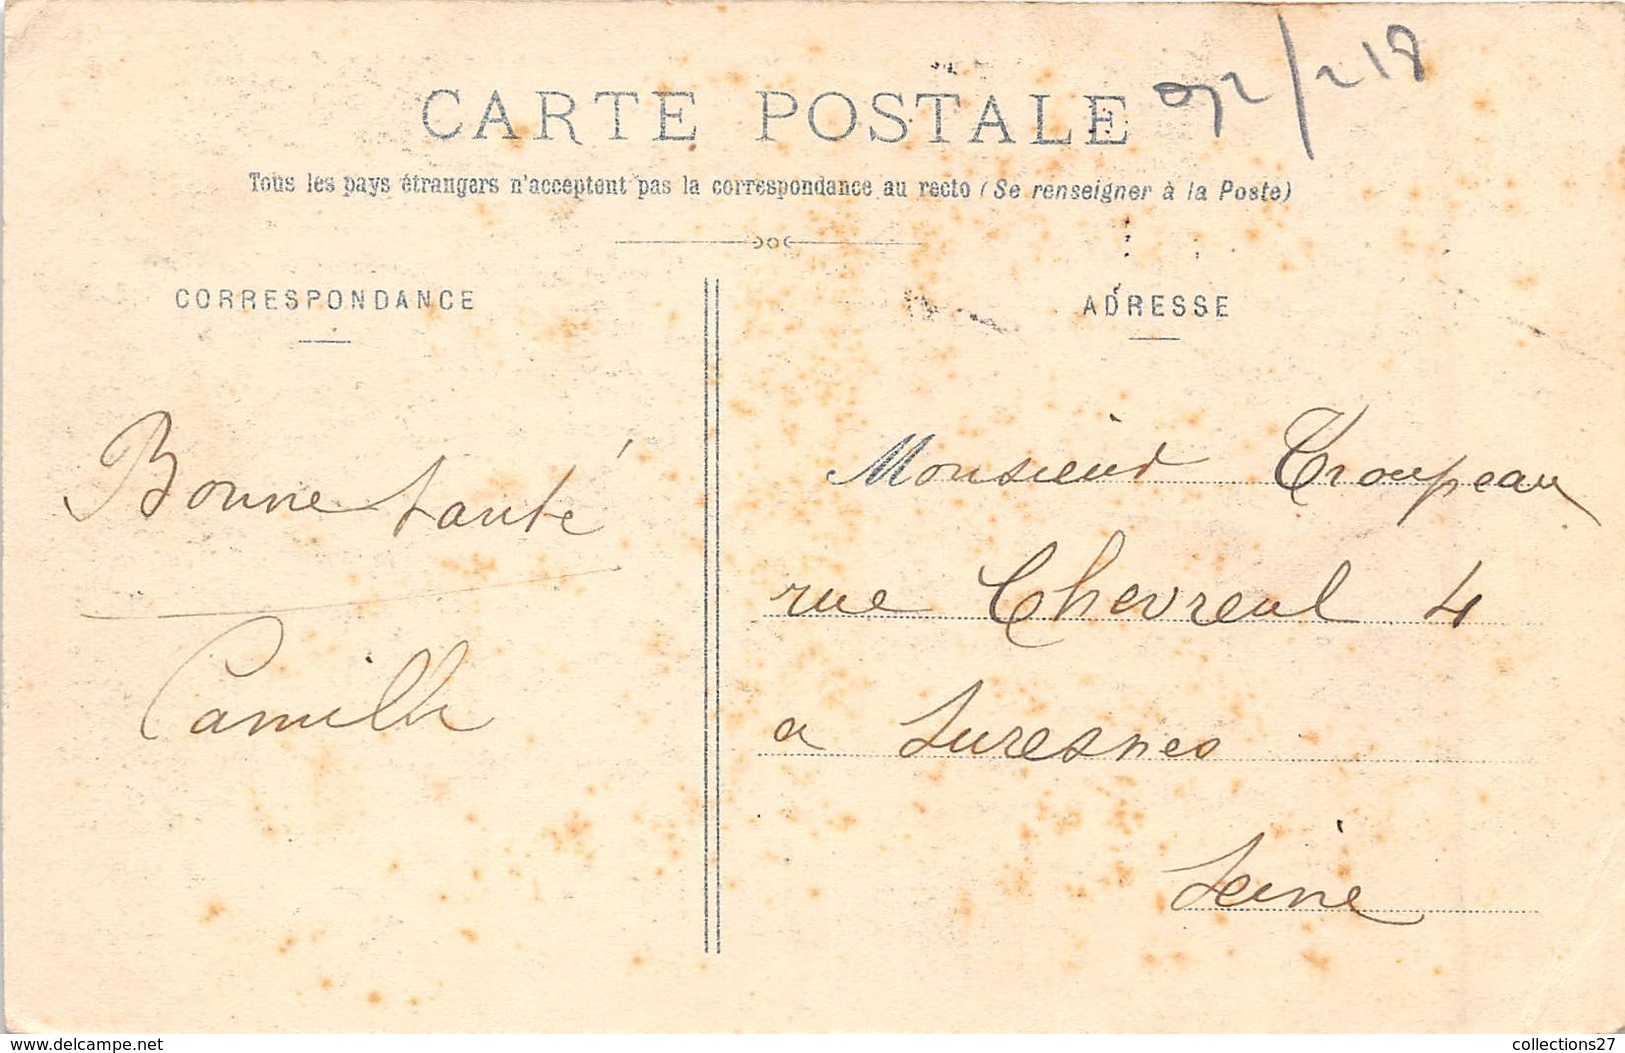 CARTE POSTALE
Tous les pays étrangers n'acceptent pas la correspondance au recto (Se renseigner à la Poste)
CORRESPONDANCE
Bonne santé
Camille
ADRESSE
Monsieur Troupeau
rue Chevreul 4
a Suresnes
Seine
www.delcampe.net
collections27